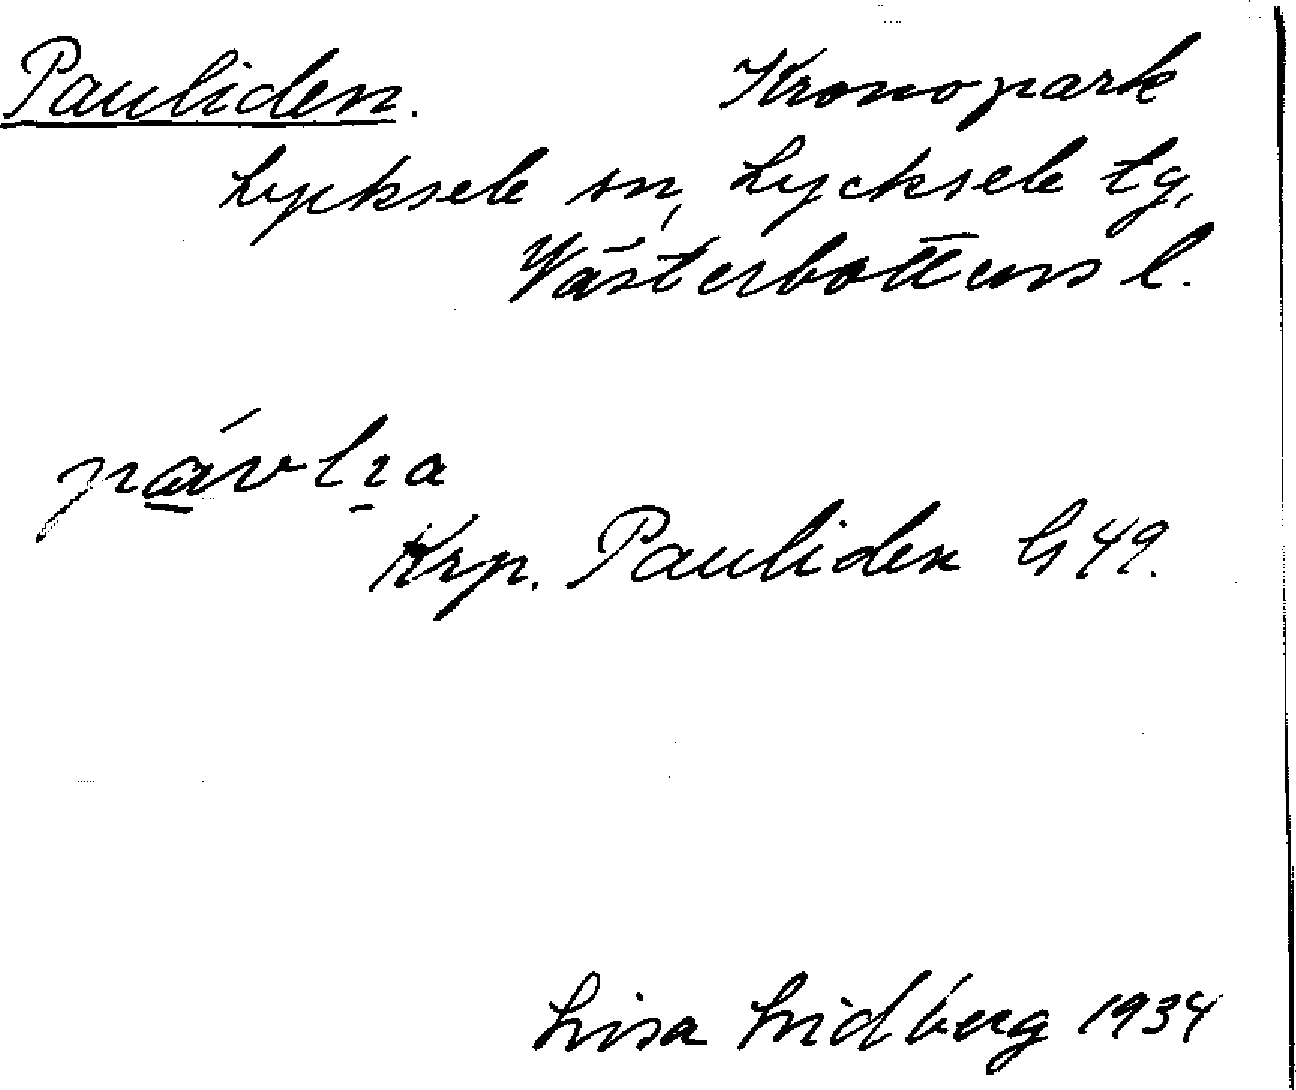 Pauliden. Kronopark
Lycksele sn, Lycksele tg,
Västerbottens l.
Krp. Pauliden G 49.
Lisa Lidberg 1934